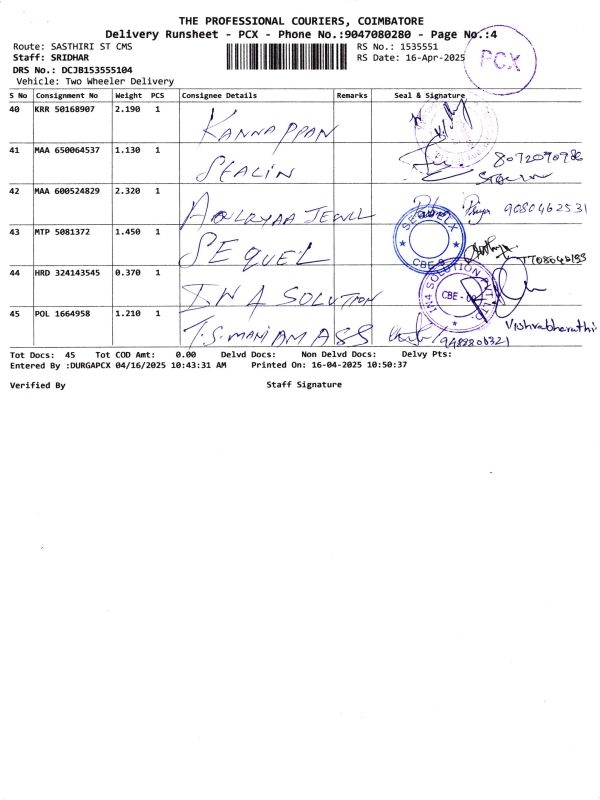 THE PROFESSIONAL COURIERS, COIMBATORE
Delivery Runsheet - PCX - Phone No.:9047080280 - Page No.:4
Route: SASTHIRI ST CMS
RS No.: 1535551
Staff: SRIDHAR
RS Date: 16-Apr-2025
PCX
DRS No.: DCJB153555104
Vehicle: Two Wheeler Delivery
S No Consignment No Weight PCS Consignee Details Remarks Seal & Signature
40 KRR 50168907 2.190 1 KANNAPPAN
41 MAA 650064537 1.130 1 STALIN 8072090986
42 MAA 600524829 2.320 1 JEWLL 9080462531
43 MTP 5081372 1.450 1 SEQUEL CBE-9
44 HRD 324143545 0.370 1 IN 4 SOLUTION IN4 SOLUTION CBE
45 POL 1664958 1.210 1 T.S.MANIAM ASS Vishvabharathi
Tot Docs: 45 Tot COD Amt: 0.00 Delvd Docs: Non Delvd Docs: Delvy Pts:
Entered By :DURGAPCX 04/16/2025 10:43:31 AM Printed On: 16-04-2025 10:50:37
Verified By Staff Signature